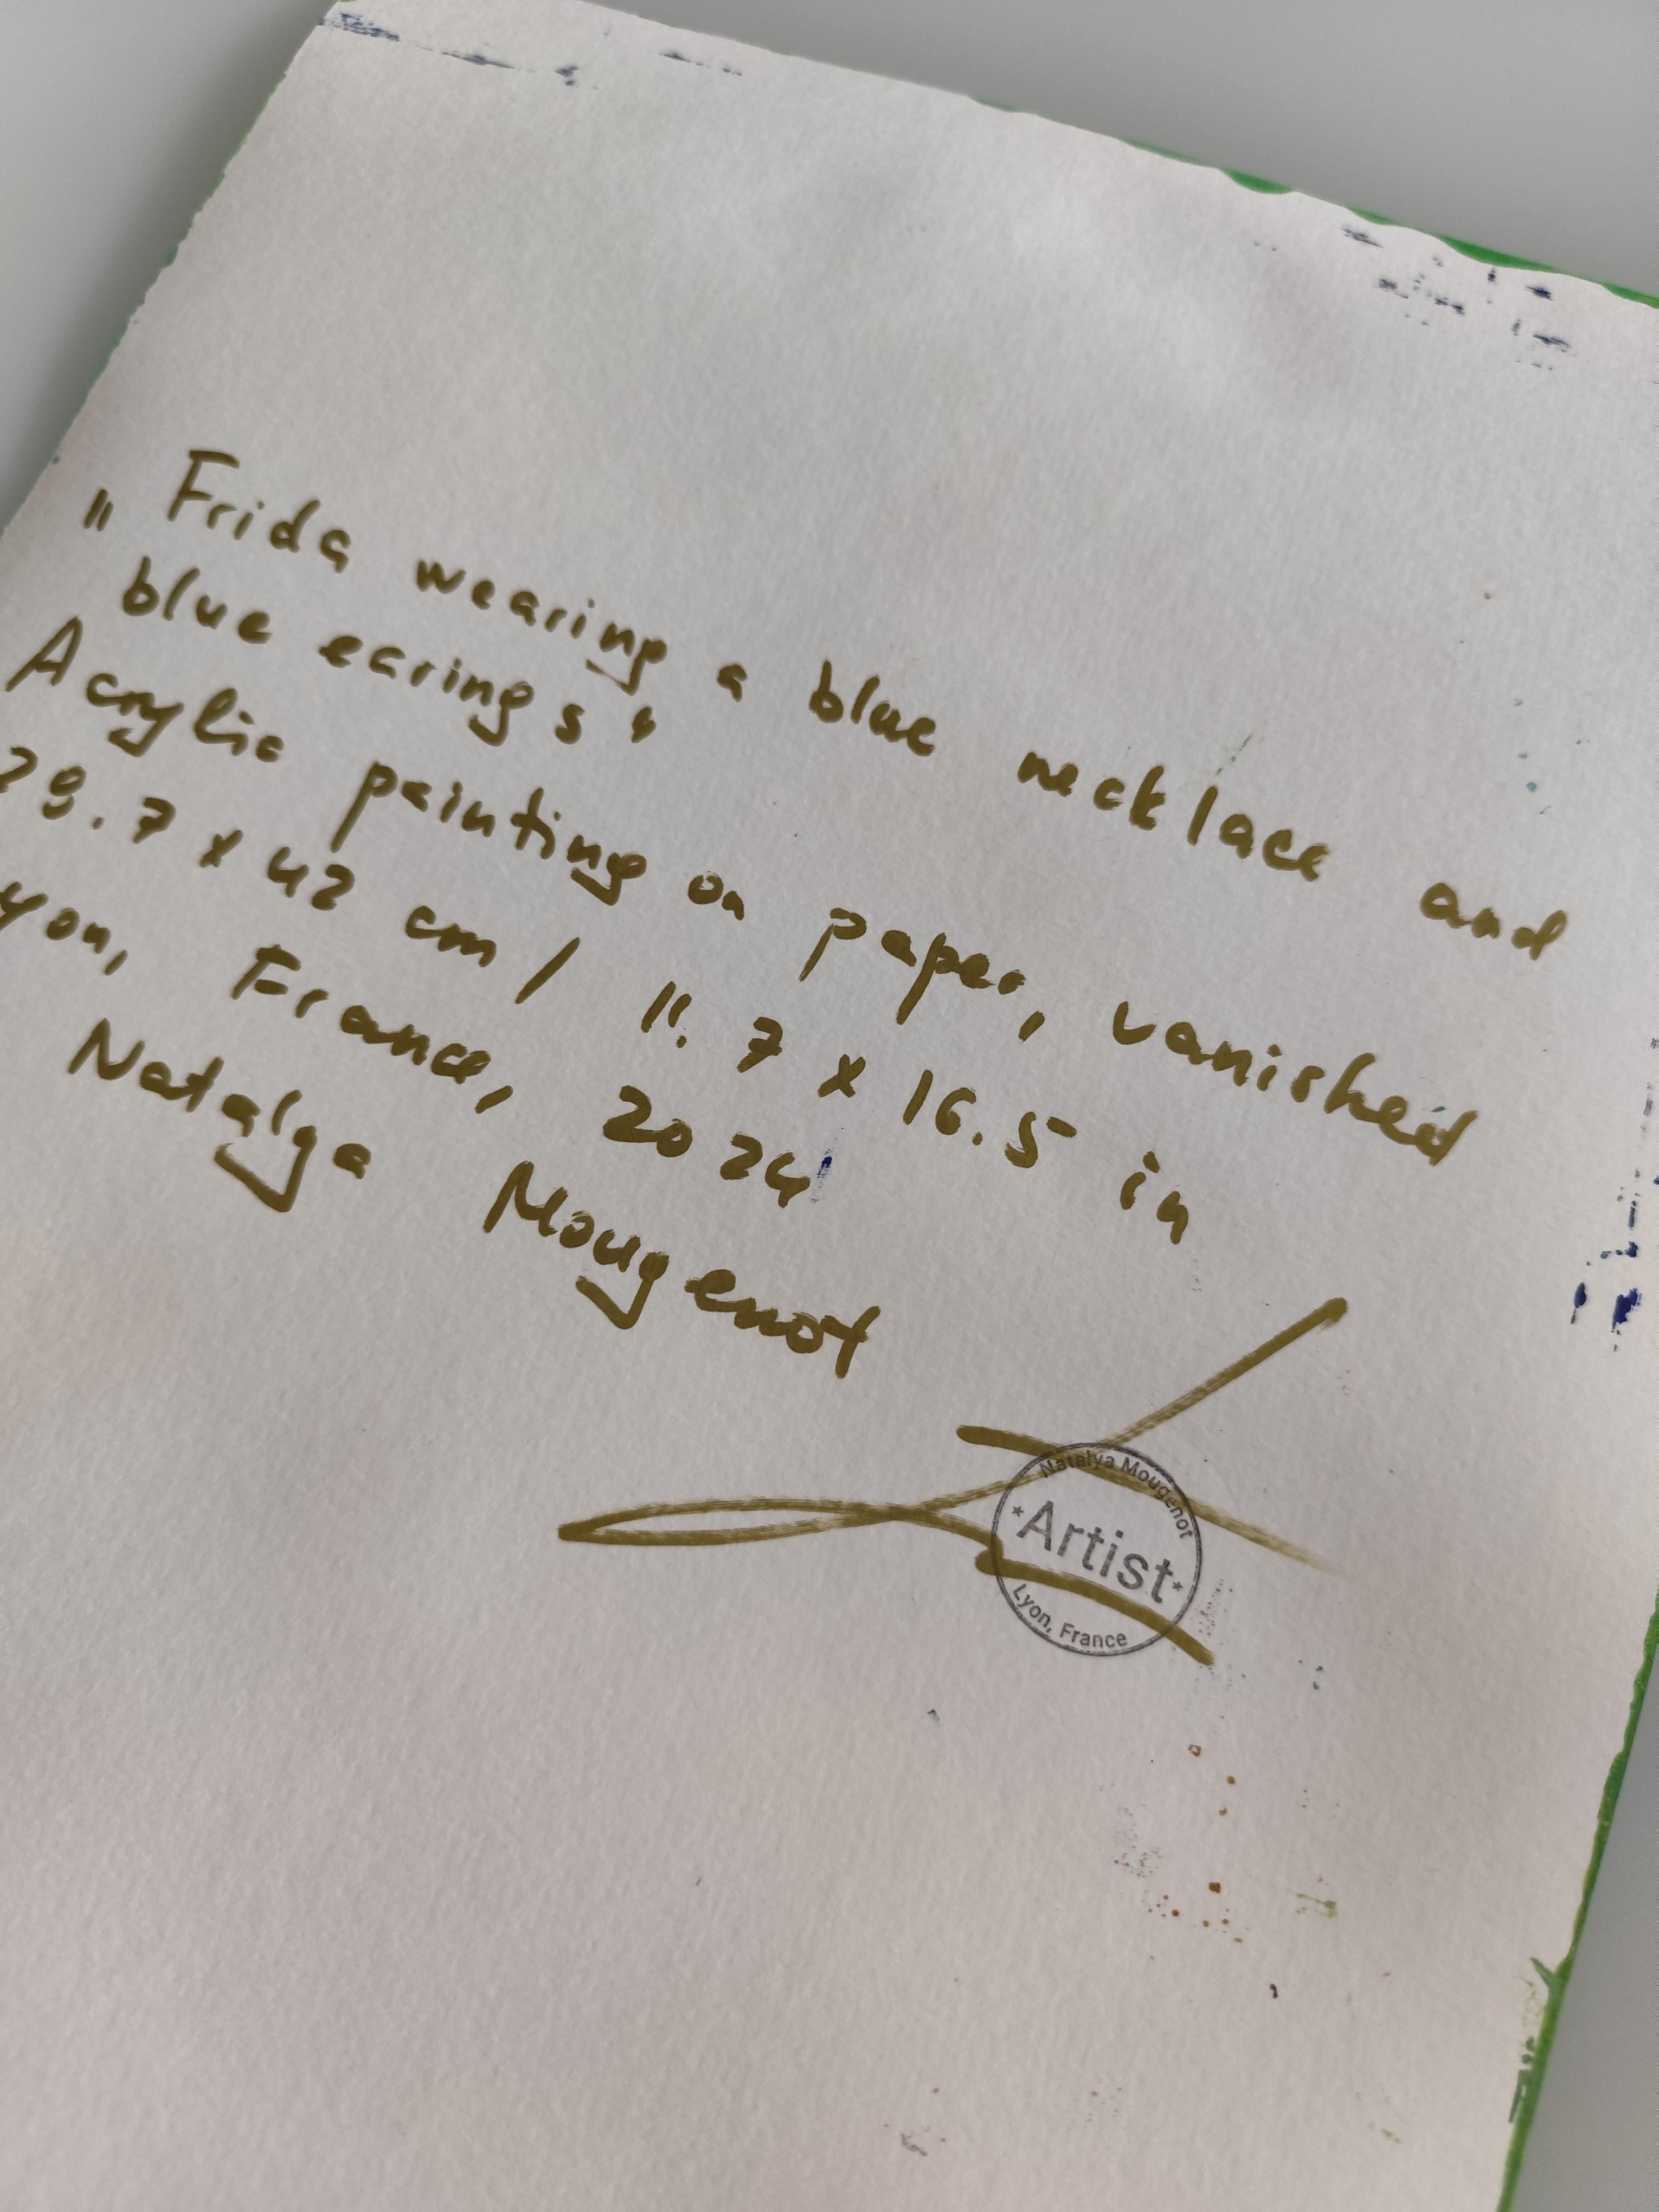 "Frida wearing a blue necklace and
blue earings"
Acrylic painting on paper, vanished
29.7 x 42 cm / 11.7 x 16.5 in
yon, France, 2024
Natalya Mougenot
Natalya Mougenot
*Artist*
Lyon, France